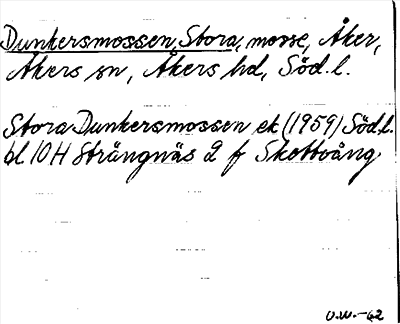 Dunkersmossen, Stora, mosse, Åker,
Åkers sn, Åkers hd, Söd.l.
Stora Dunkersmossen ek (1959) Söd.l.
bl 10H Strängnäs 2 f Skottvång
O.W.-62